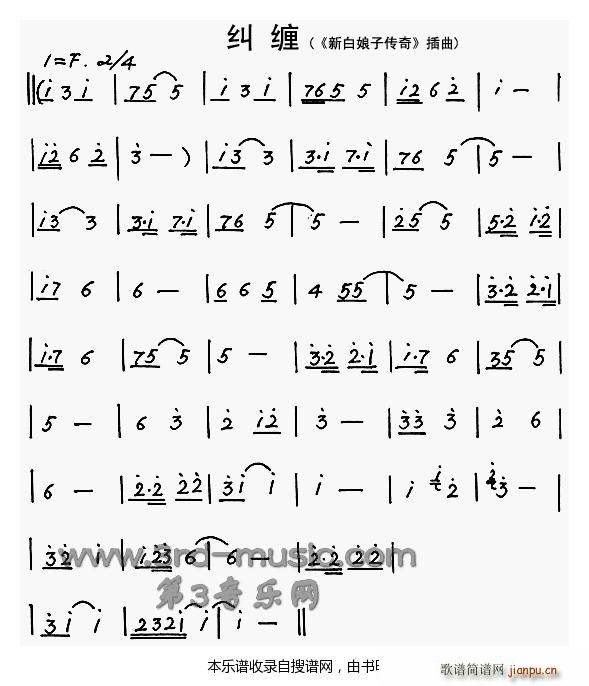 纠 缠 (《新白娘子传奇》插曲)
1=F. 2/4
‖(i 3 i | 7 5 5 | i 3 i | 76 5 5 | i2 6 2 | i — |
i2 6 2 | 3 — ) | i3 3 | 3·i 7·i | 76 5 | 5 — |
i3 3 | 3·i 7·i | 76 5 | 5 — | 25 5 | 5·2 i·2 |
i7 6 | 6 — | 6 6 5 | 4 55 | 5 — | 3·2 2·i |
i·7 6 | 75 5 | 5 — | 3·2 2·i | i·7 6 | 35 5 |
| 5 — | 6 3 | 2 i2 | 3 — | 33 3 | 2 6 |
| 6 — | 2·2 22 | 3i i | i — | i 2 | 3 — |
| 32 i | i23 6 | 6 — | 2·2 22 |
| 3i i | 232i i | i — ‖
www.3rd-music.com
第3音乐网
本乐谱收录自搜谱网，由书
歌谱简谱网
jianpu.cn